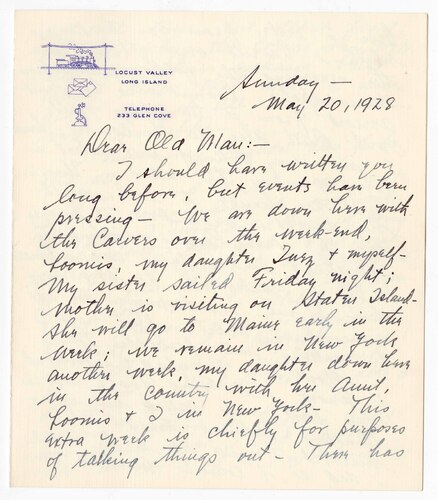 LOCUST VALLEY
LONG ISLAND
TELEPHONE
233 GLEN COVE
Sunday —
May 20, 1928
Dear Old Man:—
I should have written you
long before, but events have been
pressing — We are down here with
the Carvers over the week-end,
Loomis, my daughter Inez & myself—
My sister sailed Friday night;
Mother is visiting on Staten Island—
She will go to Maine early in the
week; we remain in New York
another week, my daughter down here
in the country with her Aunt,
Loomis & I in New York — This
extra week is chiefly for purposes
of talking things out — There has